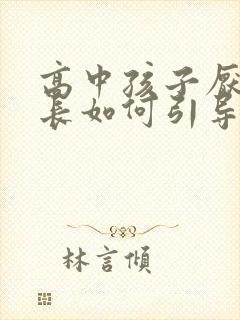 高中孩子厌
长如何引导
林言倾